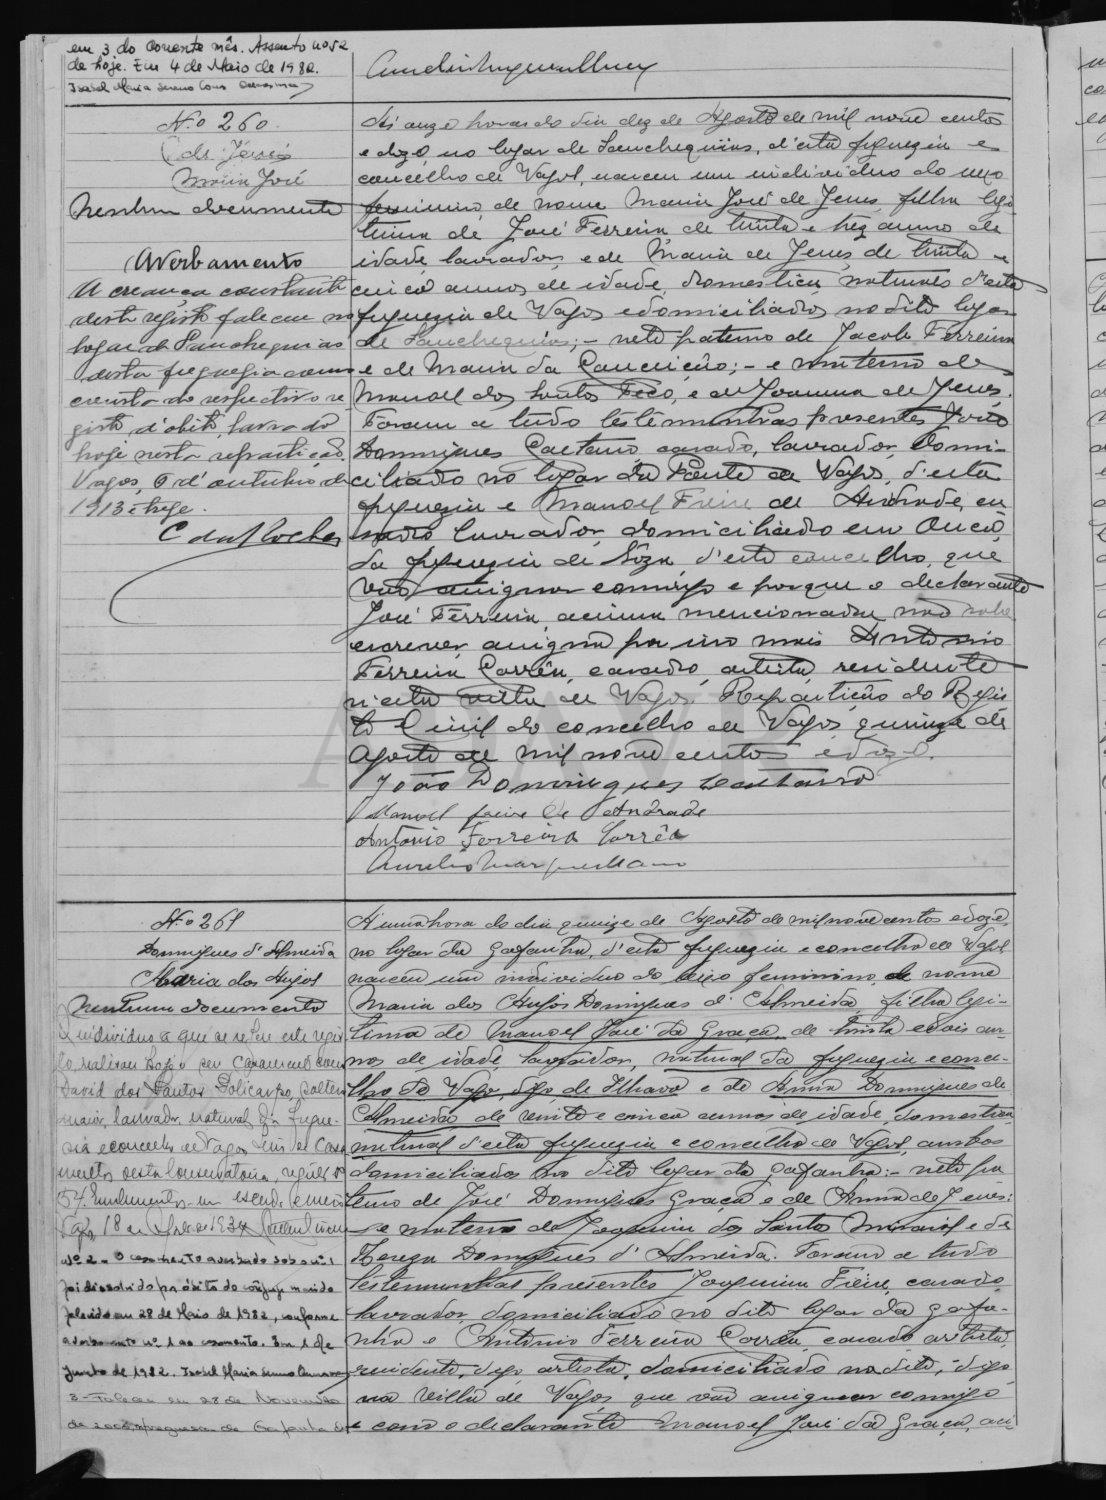 em 3 do corrente mês. Assento nº 52
de hoje. Em 4 de Maio de 1982.
Isabel Maria
N.º 260
de Jesus
Maria José
Nenhum documento
Averbamento
A creança constante
deste registo faleceu no
logar de Sanchequias
desta freguezia como
consta do respectivo re-
gisto d'obito, lavrado
hoje nesta repartição.
Vagos, 6 d'outubro de
1913 treze.
C da Rocha
Ás onze horas do dia dez de Agosto de mil nove centos
e doze, no logar de Sanchequias, d'esta freguezia e
concelho de Vagos, nasceu um individuo do sexo
feminino, de nome Maria José de Jesus, filha legi-
tima de José Ferreira de trinta e trez annos de
idade, lavrador, e de Maria de Jesus, de trinta e
cinco annos de idade, domestica, naturaes d'esta
freguezia de Vagos e domiciliados no dito logar
de Sanchequias; - neto paterno de Jacob Ferreira
e de Maria da Conceição; - e materno de
Manoel dos Santos Feco, e de Joanna de Jesus.
Foram a tudo testemunhas presentes João
Domingues Caetano, casado, lavrador, domi-
ciliado no logar da Ponte de Vagos, d'esta
freguezia e Manoel Freire de Andrade, ca-
sado lavrador, domiciliado em Ouca,
da freguezia de Sôza, d'este concelho, que
vão assignar commigo e porque o declarante
José Ferreira, acima mencionado, não sabe
escrever, assigna por isso mais Antonio
Ferreira Corrêa, casado, artista, residente
n'esta villa de Vagos. Repartição do Regis-
to Civil do concelho de Vagos, quinze de
Agosto de mil nove centos e doze.
João Domingues Caetano
Manoel freire de Andrade
António Ferreira Corrêa
N.º 261
Domingues d'Almeida
Maria dos Anjos
Nenhum documento
O individuo a que se refere este regis-
to realisou hoje o seu casamento com
David dos Santos Policarpo, solteiro
maior, lavrador, natural da fregue-
sia e concelho de Vagos,
desta Conservatoria, registo nº
54. Emolumentos um escudo
Vagos, 18 de 1934
Nº 2 - O casamento averbado sob o nº 1
foi dissolvido por óbito do cônjuge marido
falecido em 28 de Maio de 1982, conforme
averbamento nº 1 ao casamento. Em 1 de
Junho de 1982. Isabel Maria
3 - Faleceu em 28 de Novembro
de freguesia de Gafanha da
Á uma hora do dia quinze de Agosto de mil nove centos e doze,
no logar da Gafanha, d'esta freguezia e concelho de Vagos
nasceu um individuo do sexo feminino, de nome
Maria dos Anjos Domingues d'Almeida, filha legi-
tima de Manoel José da Graça, de trinta e dois an-
nos de idade, lavrador, natural da freguezia e conce-
lho de Vagos, digo, de Ilhavo e de Anna Domingues de
Almeida de vinte e cinco annos de idade, domestica,
natural d'esta freguezia e concelho de Vagos, ambos
domiciliados no dito logar da Gafanha: - neto pa-
terno de José Domingues Graça e de Anna de Jesus:
- e materno de Joaquim dos Santos e de
Thereza Domingues d'Almeida. Foram a tudo
testemunhas presentes Joaquim Freire, casado
lavrador, domiciliado no dito logar da Gafa-
nha e Antonio Ferreira Corrêa, casado artista,
residente, digo, artista, domiciliado no dito, digo
na villa de Vagos, que vão assignar commigo
e com o declarante Manoel José da Graça, aci-